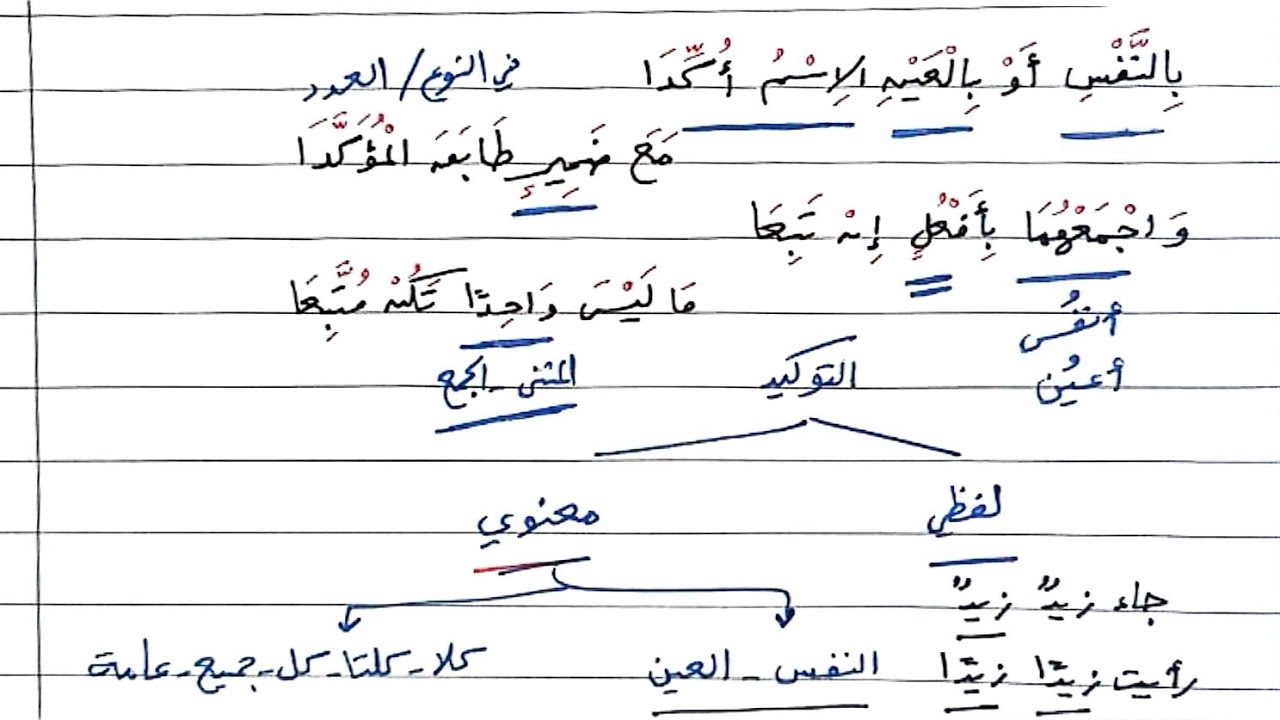 بِالنَّفْسِ أَوْ بِالْعَيْنِ الِاسْمُ أُكِّدَا في النوع/العدد
مَعَ ضَمِيرٍ طَابَقَ الْمُؤَكَّدَا
وَاجْمَعْهُمَا بِأَفْعُلٍ إِنْ تَبِعَا
مَا لَيْسَ وَاحِدًا تَكُنْ مُتَّبِعَا
أنفُس
أعيُن
المثنى - الجمع
التوكيد
لفظي
معنوي
جاء زيدٌ زيدٌ
رأيت زيدًا زيدًا
النفس - العين
كلا - كلتا - كل - جميع - عامة